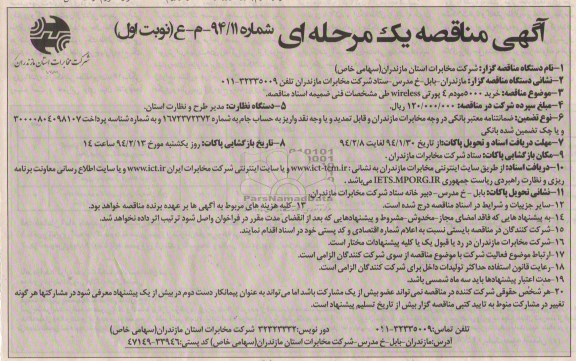 آگهی مناقصه یک مرحله ای شماره ۹۴/۱۱-م-ع(نوبت اول)
شرکت مخابرات استان مازندران
۱-نام دستگاه مناقصه گزار: شرکت مخابرات استان مازندران(سهامی خاص)
۲-نشانی دستگاه مناقصه گزار: مازندران-بابل-خ مدرس-ستاد شرکت مخابرات مازندران تلفن ۳۲۳۳۵۰۰۹-۰۱۱
۳-موضوع مناقصه: خرید ۵۰۰۰مودم ۴ پورتی wireless طی مشخصات فنی ضمیمه اسناد مناقصه.
۴-مبلغ سپرده شرکت در مناقصه: ۱۲۰/۰۰۰/۰۰۰ ریال. ۵-دستگاه نظارت: مدیر طرح و نظارت استان.
۶-نوع تضمین: ضمانتنامه معتبر بانکی در وجه مخابرات مازندران و قابل تمدید و یا وجه نقد واریز به حساب جام به شماره ۱۶۷۲۳۷۲۳۷۲ و به شماره شناسه پرداخت ۳۰۰۰۰۸۰۴۰۹۸۱۰۷
و یا چک تضمین شده بانکی
۷-مهلت دریافت اسناد و تحویل پاکات:از تاریخ ۹۴/۱/۳۰ لغایت ۹۴/۲/۸ ۸-تاریخ بازگشایی پاکات: روز یکشنبه مورخ ۹۴/۲/۱۳ ساعت ۱۴
۹-مکان بازگشایی پاکات: ستاد شرکت مخابرات مازندران.
۱۰-دریافت اسناد: از طریق سایت اینترنتی مخابرات مازندران به نشانی: www.ict-tcm.ir و یا سایت اینترنتی شرکت مخابرات ایران www.ict.ir و یا سایت اطلاع رسانی معاونت برنامه
ریزی و نظارت راهبردی ریاست جمهوری IETS.MPORG.IR می باشد.
۱۱-نشانی تحویل پاکات: بابل - خ مدرس- دبیر خانه ستاد شرکت مخابرات مازندران
۱۲-سایر جزییات و شرایط در اسناد مناقصه درج شده است. ۱۳-کلیه هزینه های مربوط به آگهی ها بر عهده برنده مناقصه خواهد بود.
۱۴-به پیشنهادهایی که فاقد امضای مجاز-مخدوش-مشروط و پیشنهادهایی که بعد از انقضای مدت مقرر در فراخوان واصل شود ترتیب اثر داده نخواهد شد.
۱۵-شرکت کنندگان در مناقصه بایستی نسبت به اعلام شماره اقتصادی و کد پستی خود در اسناد اقدام نمایند.
۱۶-شرکت مخابرات مازندران در رد یا قبول یک یا کلیه پیشنهادات مختار است.
۱۷-ارتباط موضوع فعالیت شرکت با موضوع مناقصه از سوی شرکت کنندگان الزامی است.
۱۸-رعایت قانون استفاده حداکثر تولیدات داخل برای شرکت کنندگان الزامی است.
۱۹-مدت اعتبار پیشنهادها باید سه ماه شمسی باشد.
۲۰-هر شخص حقوقی شرکت کننده در مناقصه نمی تواند عضو بیش از یک مشارکت باشد اما می تواند به عنوان پیمانکار دست دوم در بیش از یک پیشنهاد معرفی شود در مشارکتها هر گونه
تغییر در مشارکت منوط به تایید کتبی مناقصه گزار بیش از تاریخ تسلیم پیشنهاد است.
تلفن تماس:۳۲۳۳۵۰۰۹-۰۱۱ دور نویس:۳۲۳۲۳۳۳۲ شرکت مخابرات استان مازندران(سهامی خاص)
آدرس:مازندران-بابل-خ مدرس-شرکت مخابرات استان مازندران(سهامی خاص) کد پستی:۳۳۹۴۶-۴۷۱۴۹